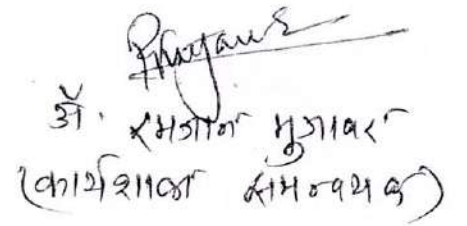 अॅ. रमजान मुजावर
(कार्यशाळा समन्वयक)